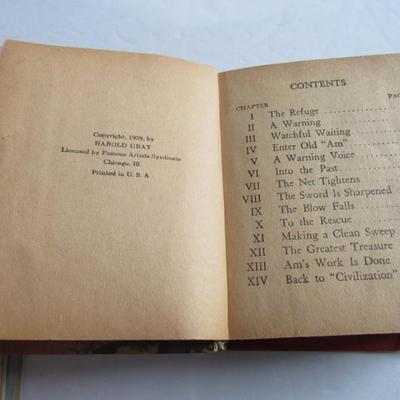 Copyright, 1939, by
HAROLD GRAY
Licensed by Famous Artists Syndicate
Chicago, Ill.
Printed in U. S. A.
CONTENTS
CHAPTER
I The Refuge
II A Warning
III Watchful Waiting
IV Enter Old "Am"
V A Warning Voice
VI Into the Past
VII The Net Tightens
VIII The Sword Is Sharpened
IX The Blow Falls
X To the Rescue
XI Making a Clean Sweep
XII The Greatest Treasure
XIII Am's Work Is Done
XIV Back to "Civilization"